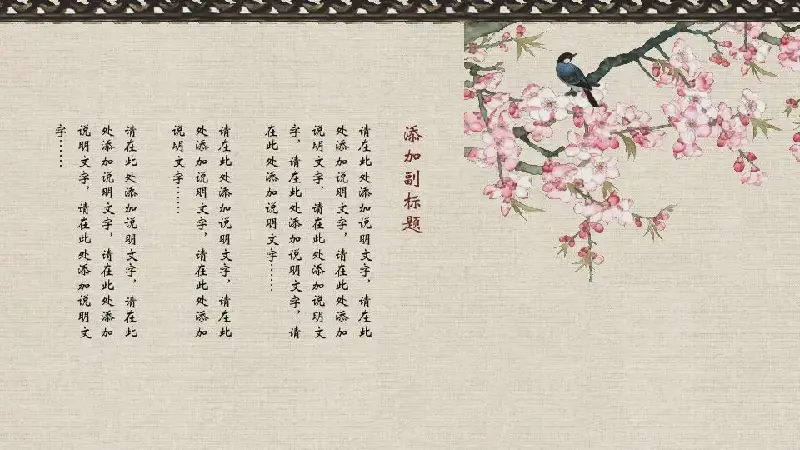 添加副标题
请在此处添加说明文字，请在此
处添加说明文字，请在此处添加
说明文字，请在此处添加说明文
字，请在此处添加说明文字，请
在此处添加说明文字……
请在此处添加说明文字，请在此
处添加说明文字，请在此处添加
说明文字……
请在此处添加说明文字，请在此
处添加说明文字，请在此处添加
说明文字，请在此处添加说明文
字……